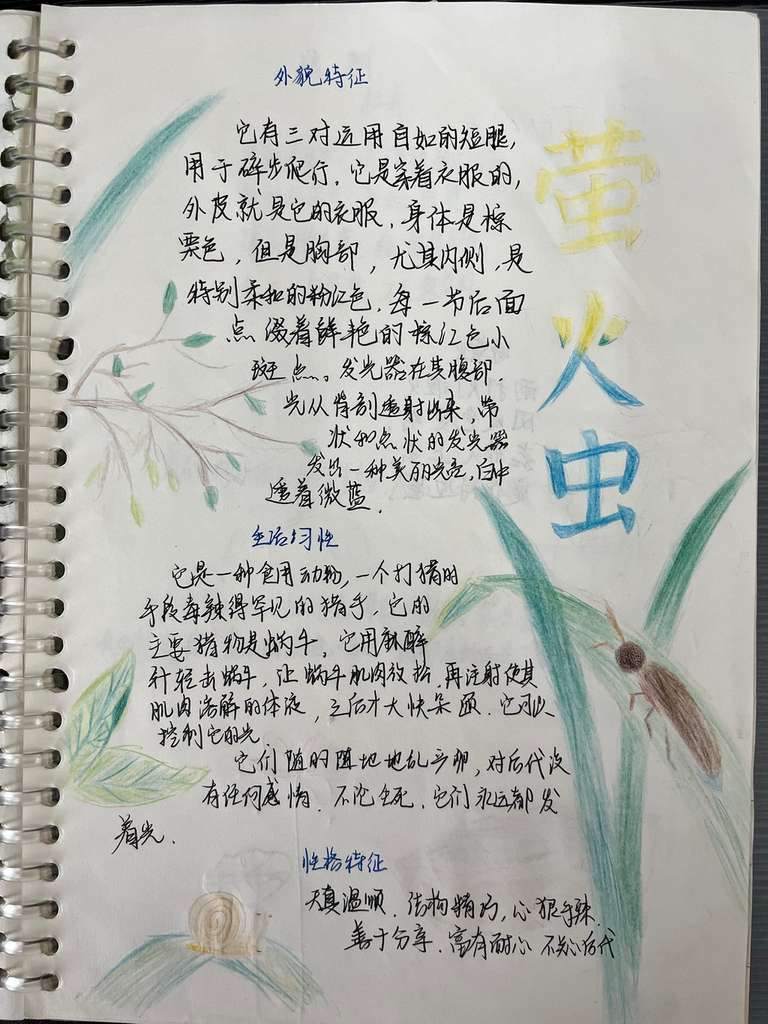 萤火虫
外貌特征
它有三对运用自如的短腿,
用于碎步爬行.它是穿着衣服的,
外皮就是它的衣服.身体是棕
栗色,但是胸部,尤其内侧,是
特别柔和的粉红色.每一节后面
点缀着鲜艳的棕红色小
斑点。发光器在其腹部.
光从背部透射出来,带
状和点状的发光器
发出一种美丽光亮,白中
透着微蓝.
生活习性
它是一种食肉动物,一个打猎的
手段毒辣得罕见的猎手.它的
主要猎物是蜗牛.它用麻醉
针轻击蜗牛,让蜗牛肌肉放松,再注射使其
肌肉溶解的体液,之后才大快朵颐.它可以
控制它的光.
它们随时随地地乱产卵,对后代没
有任何感情.不论生死.它们永远都发
着光.
性格特征
天真温顺.结构精巧,心狠手辣.
善于分享.富有耐心 不关心后代